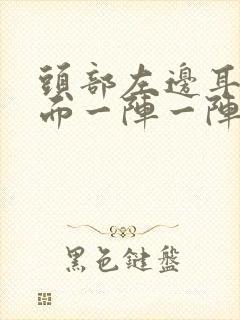 頭部左邊耳
而一陣一陣
黑色鍵盤